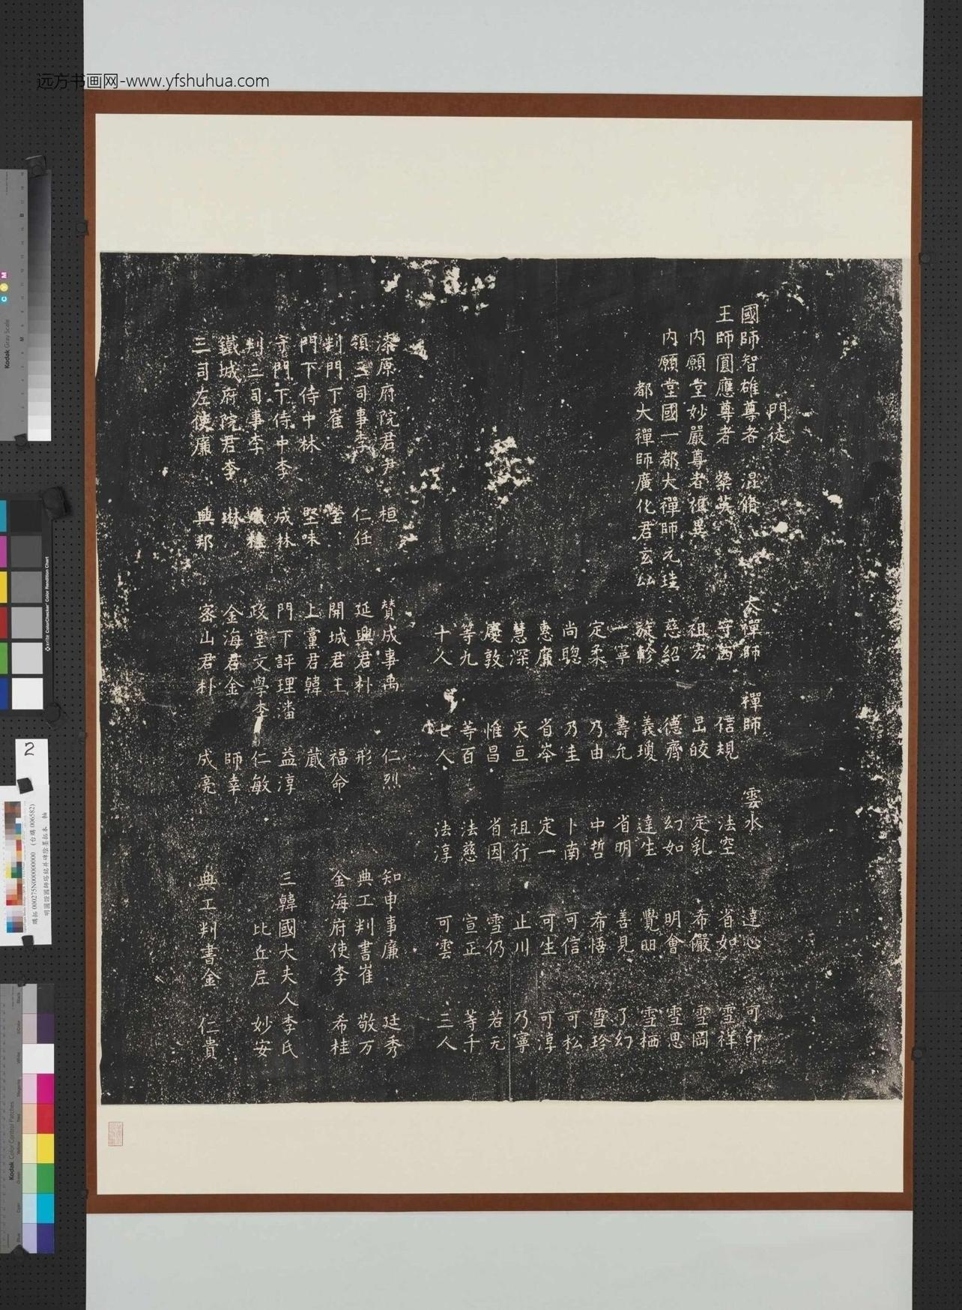 远方书画网-www.yfshuhua.com
門徒
國師智雄尊者 混脩 大禪師 禪師 雲水 達心 可印
王師圓應尊者 粲英 守 信規 法空 省如 雪祥
內願堂妙嚴尊者 異 祖宏 昷皎 定乳 希儼 雪岡
內願堂國一都大禪師元珪 慈紹 德齊 幻如 明會 雪思
都大禪師廣化君玄 旋軫 義瓊 達生 覺明 雪栖
一寧 壽允 省明 善見 了幻
定柔 乃由 中哲 希悟 雪珍
尚聰 乃圭 卜南 可信 可松
惠廉 省岑 定一 可生 可淳
慧深 天亘 祖行 止川 乃寧
慶敦 惟昌 省因 雪仍 若元
等九 等百 法慈 宣正 等千
十人 七人 法淳 可雲 三人
柒原府院君尹 桓 贊成事禹 仁烈 知申事廉 廷秀
領三司事李 仁任 延興君朴 形 典工判書崔 敬万
判門下崔 瑩 開城君王 福命 金海府使李 希桂
門下侍中林 堅味 上黨君韓 蕆
守門下侍中李 成林 門下評理潘 益淳 三韓國大夫人李氏
判三司事李 政堂文學李 仁敏 比丘尼 妙安
鐵城府院君李 琳 金海君金 師幸
三司左使廉 興邦 密山君朴 成亮 典工判書金 仁貴
2